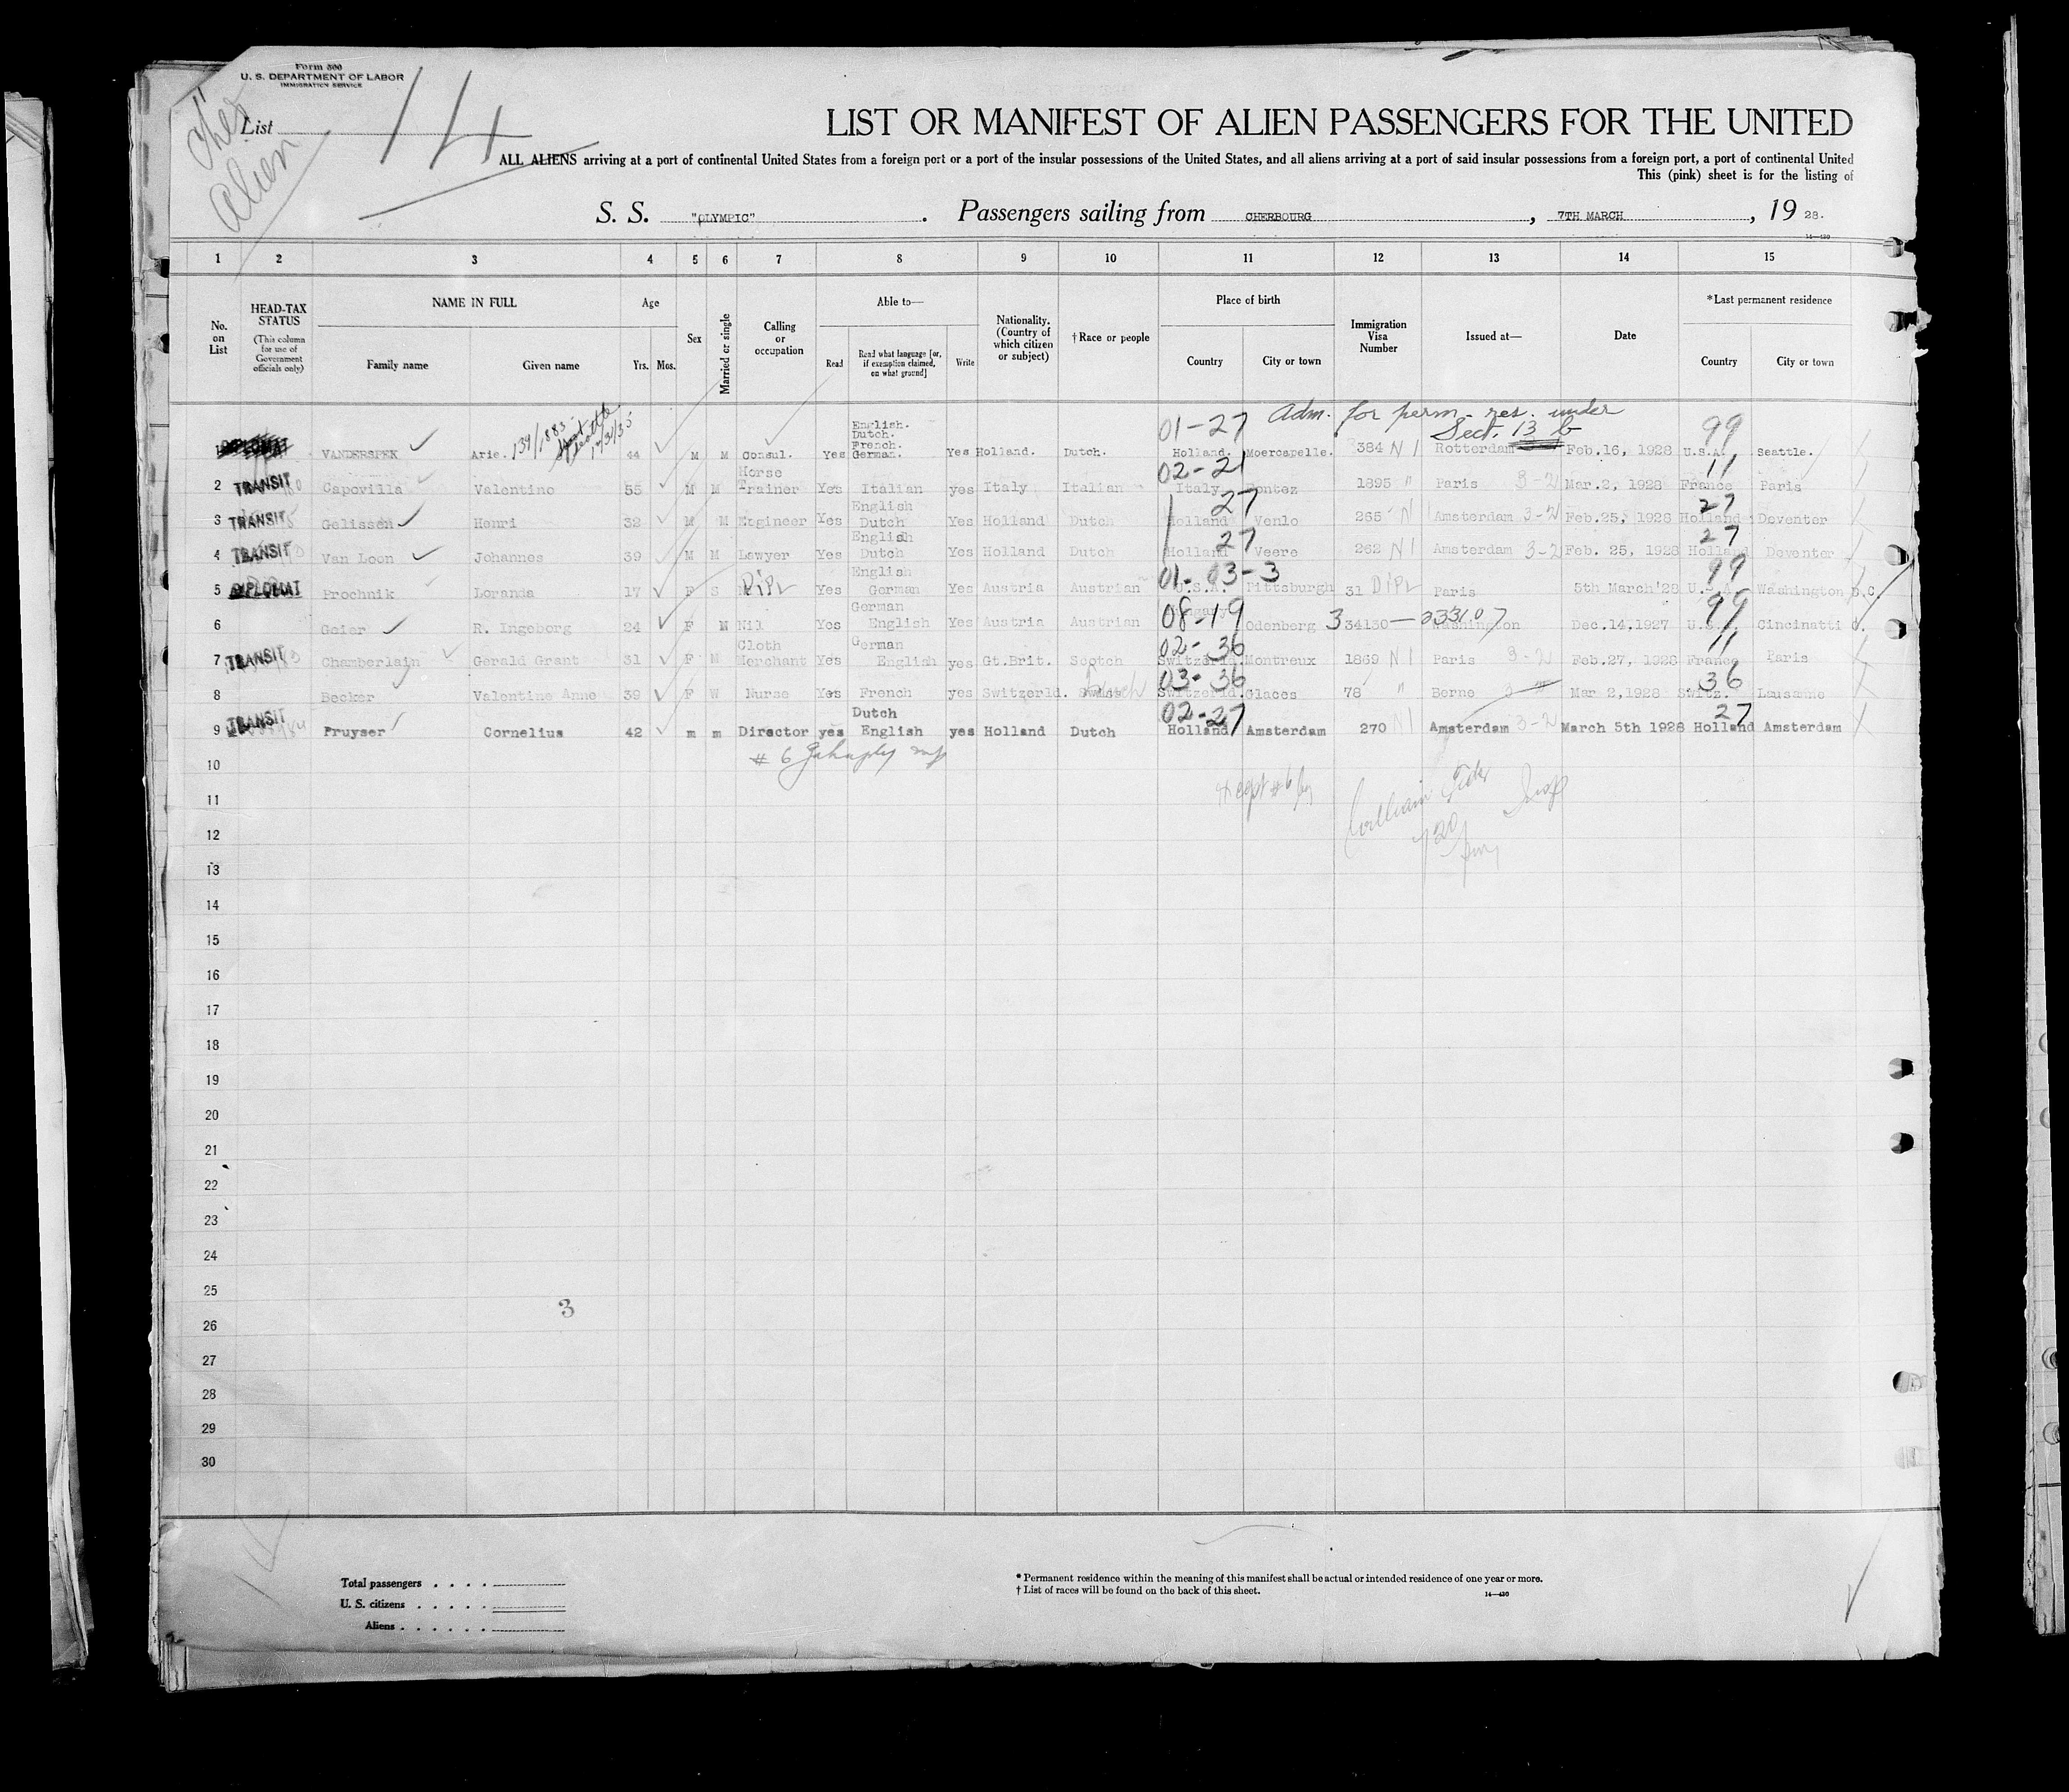 Form 500
U. S. DEPARTMENT OF LABOR
IMMIGRATION SERVICE
Cher.
alien
List 14
LIST OR MANIFEST OF ALIEN PASSENGERS FOR THE UNITED
ALL ALIENS arriving at a port of continental United States from a foreign port or a port of the insular possessions of the United States, and all aliens arriving at a port of said insular possessions from a foreign port, a port of continental United
This (pink) sheet is for the listing of
S. S. "OLYMPIC". Passengers sailing from CHERBOURG, 7TH MARCH, 19 28.
14—430
1 2 3 4 5 6 7 8 9 10 11 12 13 14 15
No. on List
HEAD-TAX STATUS
(This column for use of Government officials only)
NAME IN FULL
Family name Given name
Age
Yrs. Mos.
Sex
Married or single
Calling or occupation
Able to—
Read
Read what language [or, if exemption claimed, on what ground]
Write
Nationality. (Country of which citizen or subject)
†Race or people
Place of birth
Country City or town
Immigration Visa Number
Issued at—
Date
*Last permanent residence
Country City or town
139/1885 Seattle 12/31/35
Adm. for perm. res. under
Sect. 13 b
01-27 99
English. Dutch. French.
1 DIPLOMAT VANDERSPEK Arie. 44 M M Consul. Yes German. Yes Holland. Dutch. Holland. Moercapelle. 384 N I Rotterdam Feb.16, 1928 U.S.A. Seattle.
Horse 02-21 11
2 TRANSIT Capovilla Valentino 55 M M Trainer Yes Italian yes Italy Italian Italy Pontez 1895 " Paris 3-2 Mar.2, 1928 France Paris
English 27 27
3 TRANSIT Gelissen Henri 32 M M Engineer Yes Dutch Yes Holland Dutch Holland Venlo 265 N I Amsterdam 3-2 Feb.25, 1928 Holland Deventer
English 27 27
4 TRANSIT Van Loon Johannes 39 M M Lawyer Yes Dutch Yes Holland Dutch Holland Veere 262 N I Amsterdam 3-2 Feb. 25, 1928 Holland Deventer
English 01-03-3 99
5 DIPLOMAT Prochnik Loranda 17 F S Dipl Yes German Yes Austria Austrian U.S.A. Pittsburgh 31 Dipl Paris 5th March'28 U.S.A. Washington D.C.
German 08-19 99
6 Geier R. Ingeborg 24 F M Nil Yes English Yes Austria Austrian Odenberg 334130 — Washington Dec.14,1927 U.S. Cincinatti O.
Cloth German 02-36 11
7 TRANSIT Chamberlain Gerald Grant 31 F M Merchant Yes English yes Gt.Brit. Scotch Switzerld. Montreux 1869 N I Paris 3-2 Feb.27, 1928 France Paris
French 03-36 36
8 Becker Valentine Anne 39 F W Nurse Yes French yes Switzerld. Swiss Switzerld. Glaces 78 " Berne Mar 2,1928 Switz. Lausanne
Dutch 02-27 27
9 TRANSIT Pruyser Cornelius 42 m m Director yes English yes Holland Dutch Holland Amsterdam 270 N I Amsterdam 3-2 March 5th 1928 Holland Amsterdam
# 6
10
11
12
13
14
15
16
17
18
19
20
21
22
23
24
25
3
26
27
28
29
30
Total passengers
U. S. citizens
Aliens
* Permanent residence within the meaning of this manifest shall be actual or intended residence of one year or more.
† List of races will be found on the back of this sheet.
14—430